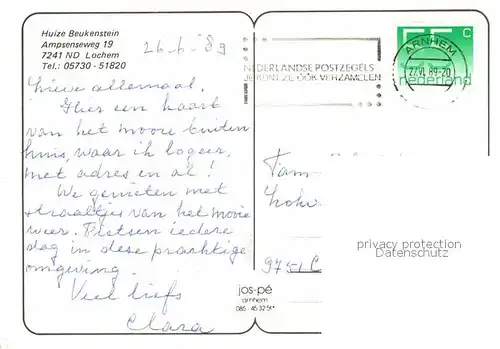 Huize Beukenstein
Ampsenseweg 19
7241 ND Lochem
Tel.: 05730 - 51820
26-6-'89
Lieve allemaal,
Hier een kaart
van het mooie buiten
huis, waar ik logeer,
met adres en al!
We genieten met
straaltjes van het mooie
weer. Fietsen iedere
dag in deze prachtige
omgeving.
Veel liefs
Clara
jos-pé
arnhem
085-45 32 51*
NEDERLANDSE POSTZEGELS
JE KUNT ZE OOK VERZAMELEN
ARNHEM
27.VI.89-20
c
nederland
Fam
privacy protection
Datenschutz
9751 C